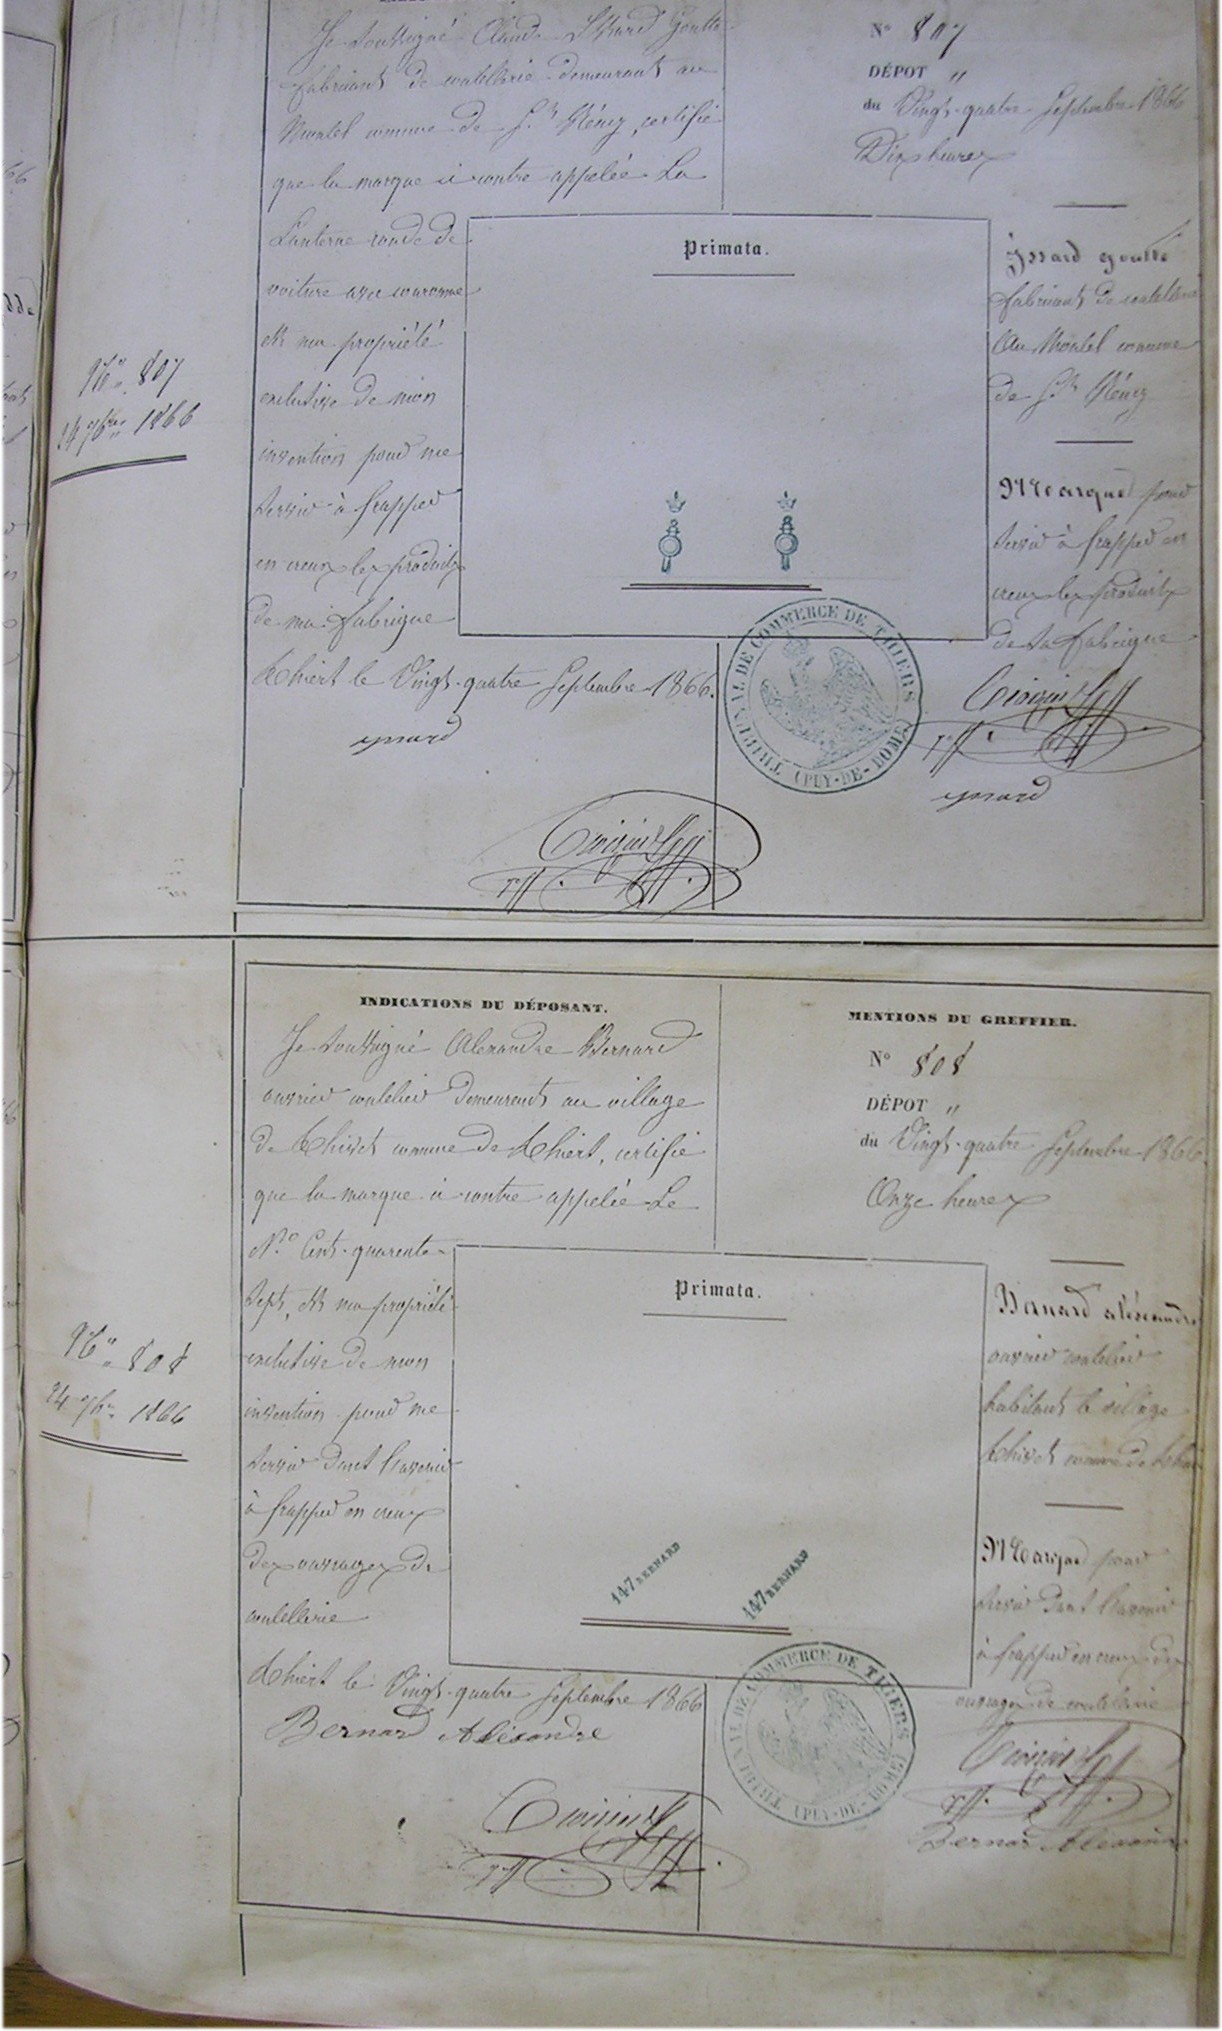 Je soussigné Claude Issard Goutte
fabricant de coutellerie demeurant au
Montel commune de St Rémy, certifie
que la marque ci contre appelée La
Lanterne ronde de
voiture avec couronne
est ma propriété
exclusive de mon
invention pour me
servir à frapper
en creux les produits
de ma fabrique
Thiers le Vingt-quatre Septembre 1866.
yssard
N° 807
DÉPOT "
du Vingt-quatre Septembre 1866
Dix heures
Primata.
Yssard goutte
fabricant de coutellerie
Au Montel commune
de St Rémy
Marque pour
servir à frapper en
creux les produits
de sa fabrique
yssard
TRIBUNAL DE COMMERCE DE THIERS
(PUY-DE-DOME)
N° 807
24 7bre 1866
INDICATIONS DU DÉPOSANT.
Je soussigné Alexandre Bernard
ouvrier coutelier demeurant au village
de commune de Thiers, certifie
que la marque ci contre appelée Le
N° Cent-quarente-
sept, est ma propriété
exclusive de mon
invention pour me
servir dans l'avenir
à frapper en creux
des ouvrages de
coutellerie
Thiers le Vingt-quatre Septembre 1866
Bernard Aléxandre
MENTIONS DU GREFFIER.
N° 808
DÉPOT "
du Vingt-quatre Septembre 1866.
Onze heures
Primata.
147 BERNARD
147 BERNARD
Bernard aléxandre
ouvrier coutelier
habitant le village
commune de
Marque pour
servir dans l'avenir
à frapper en creux des
ouvrages de coutellerie
Bernard Aléxandre
TRIBUNAL DE COMMERCE DE THIERS
(PUY-DE-DOME)
N° 808
24 7bre 1866